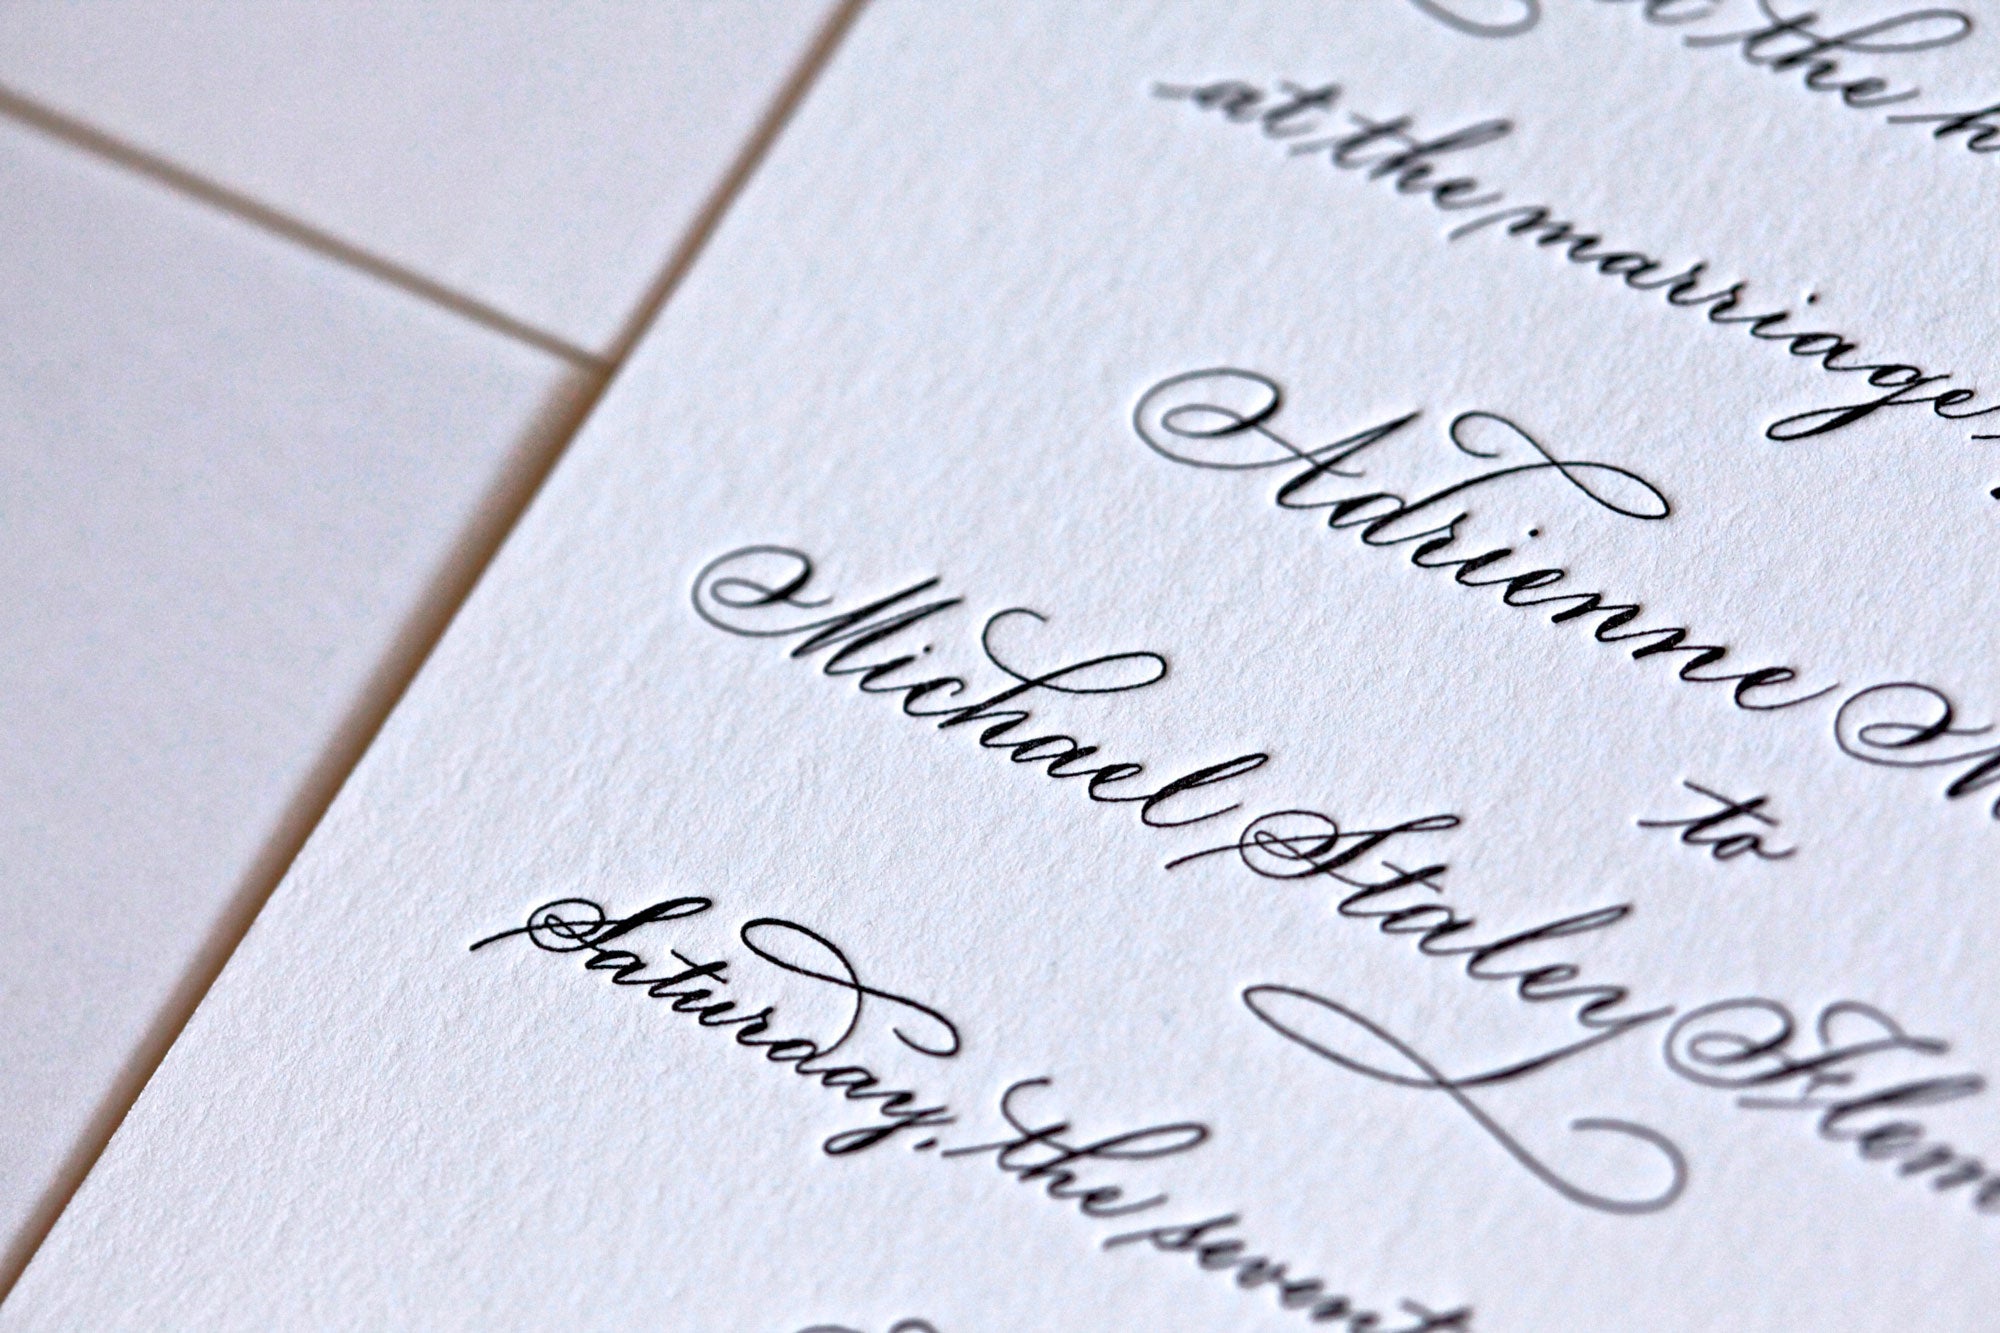 the
at the marriage
Adrienne
to
Michael Staley Flem
Saturday, the sevent